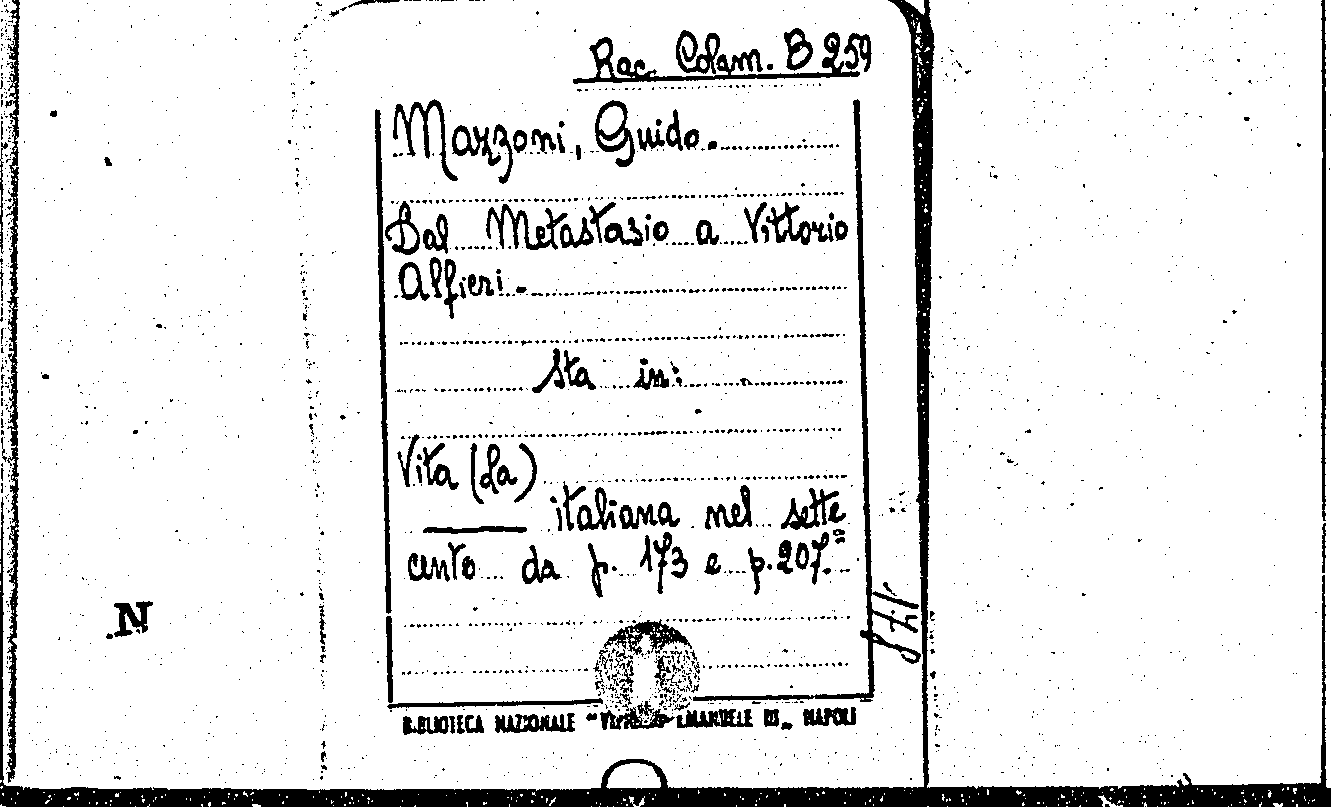 Rac. Colam. B 259
Mazzoni, Guido.
Dal Metastasio a Vittorio
Alfieri.
Sta in:
Vita (La)
italiana nel sette
cento da p. 173 e p. 207.
N
BIBLIOTECA NAZIONALE "VITTORIO EMANUELE III" NAPOLI